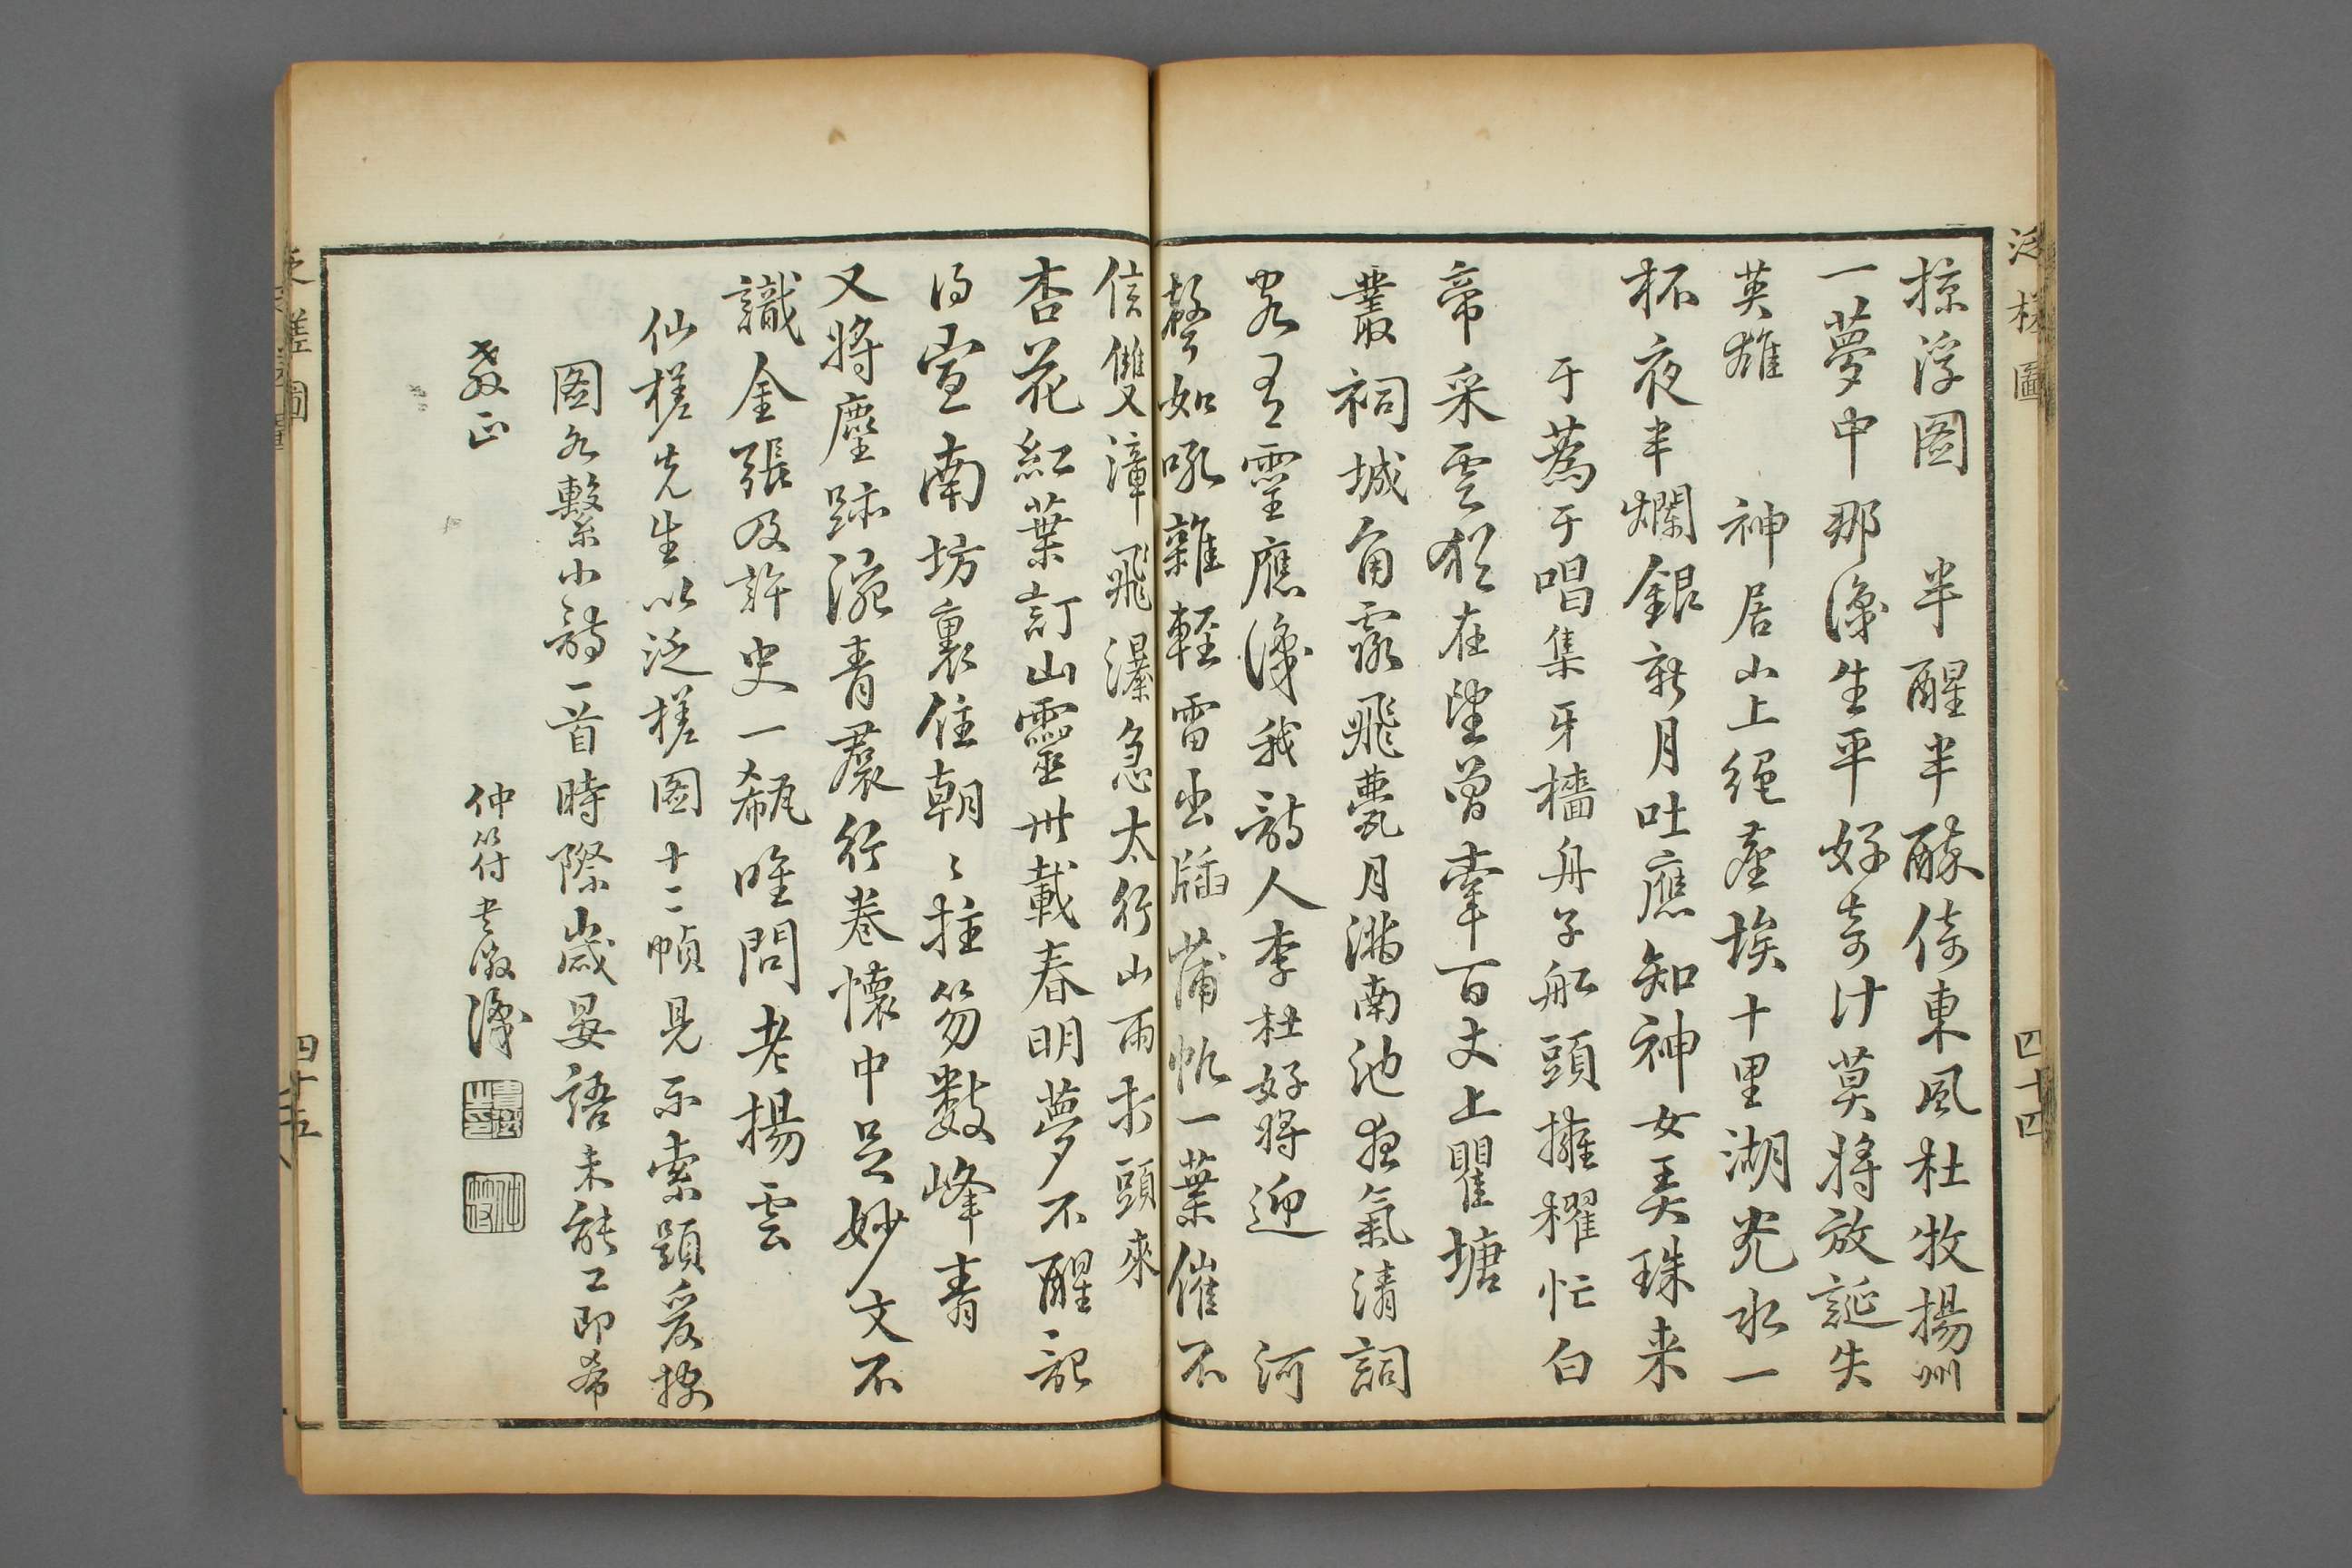 泛槎圖
四十四
掠浮圖　半醒半醉倚東風杜牧揚州
一夢中那識生平好奇計莫將放誕失
英雄　神居山上絕塵埃十里湖光水一
杯夜半爛銀新月吐應知神女弄珠来
于蒍于唱集牙檣舟子船頭擁櫂忙白
帝采雲猶在望曾牽百丈上瞿塘
叢祠城角露飛甍月滿南池夜氣清詞
客有靈應識我詩人李杜好將迎　河
聲如吼雜輕雷出牐蒲帆一葉催不
信雙漳飛瀑急太行山雨打頭來
杏花紅葉訂山靈卅載春明夢不醒記
得宣南坊裏住朝〻拄笏數峰青
又將塵跡涴青裙行卷懷中足妙文不
識金張及許史一瓻唯問老揚雲
仙槎先生以泛槎圖十二幀見示索題爰按
圖各繫小詩一首時際歲晏語未能工即希
教正
仲符李澂識
泛槎圖
四十五